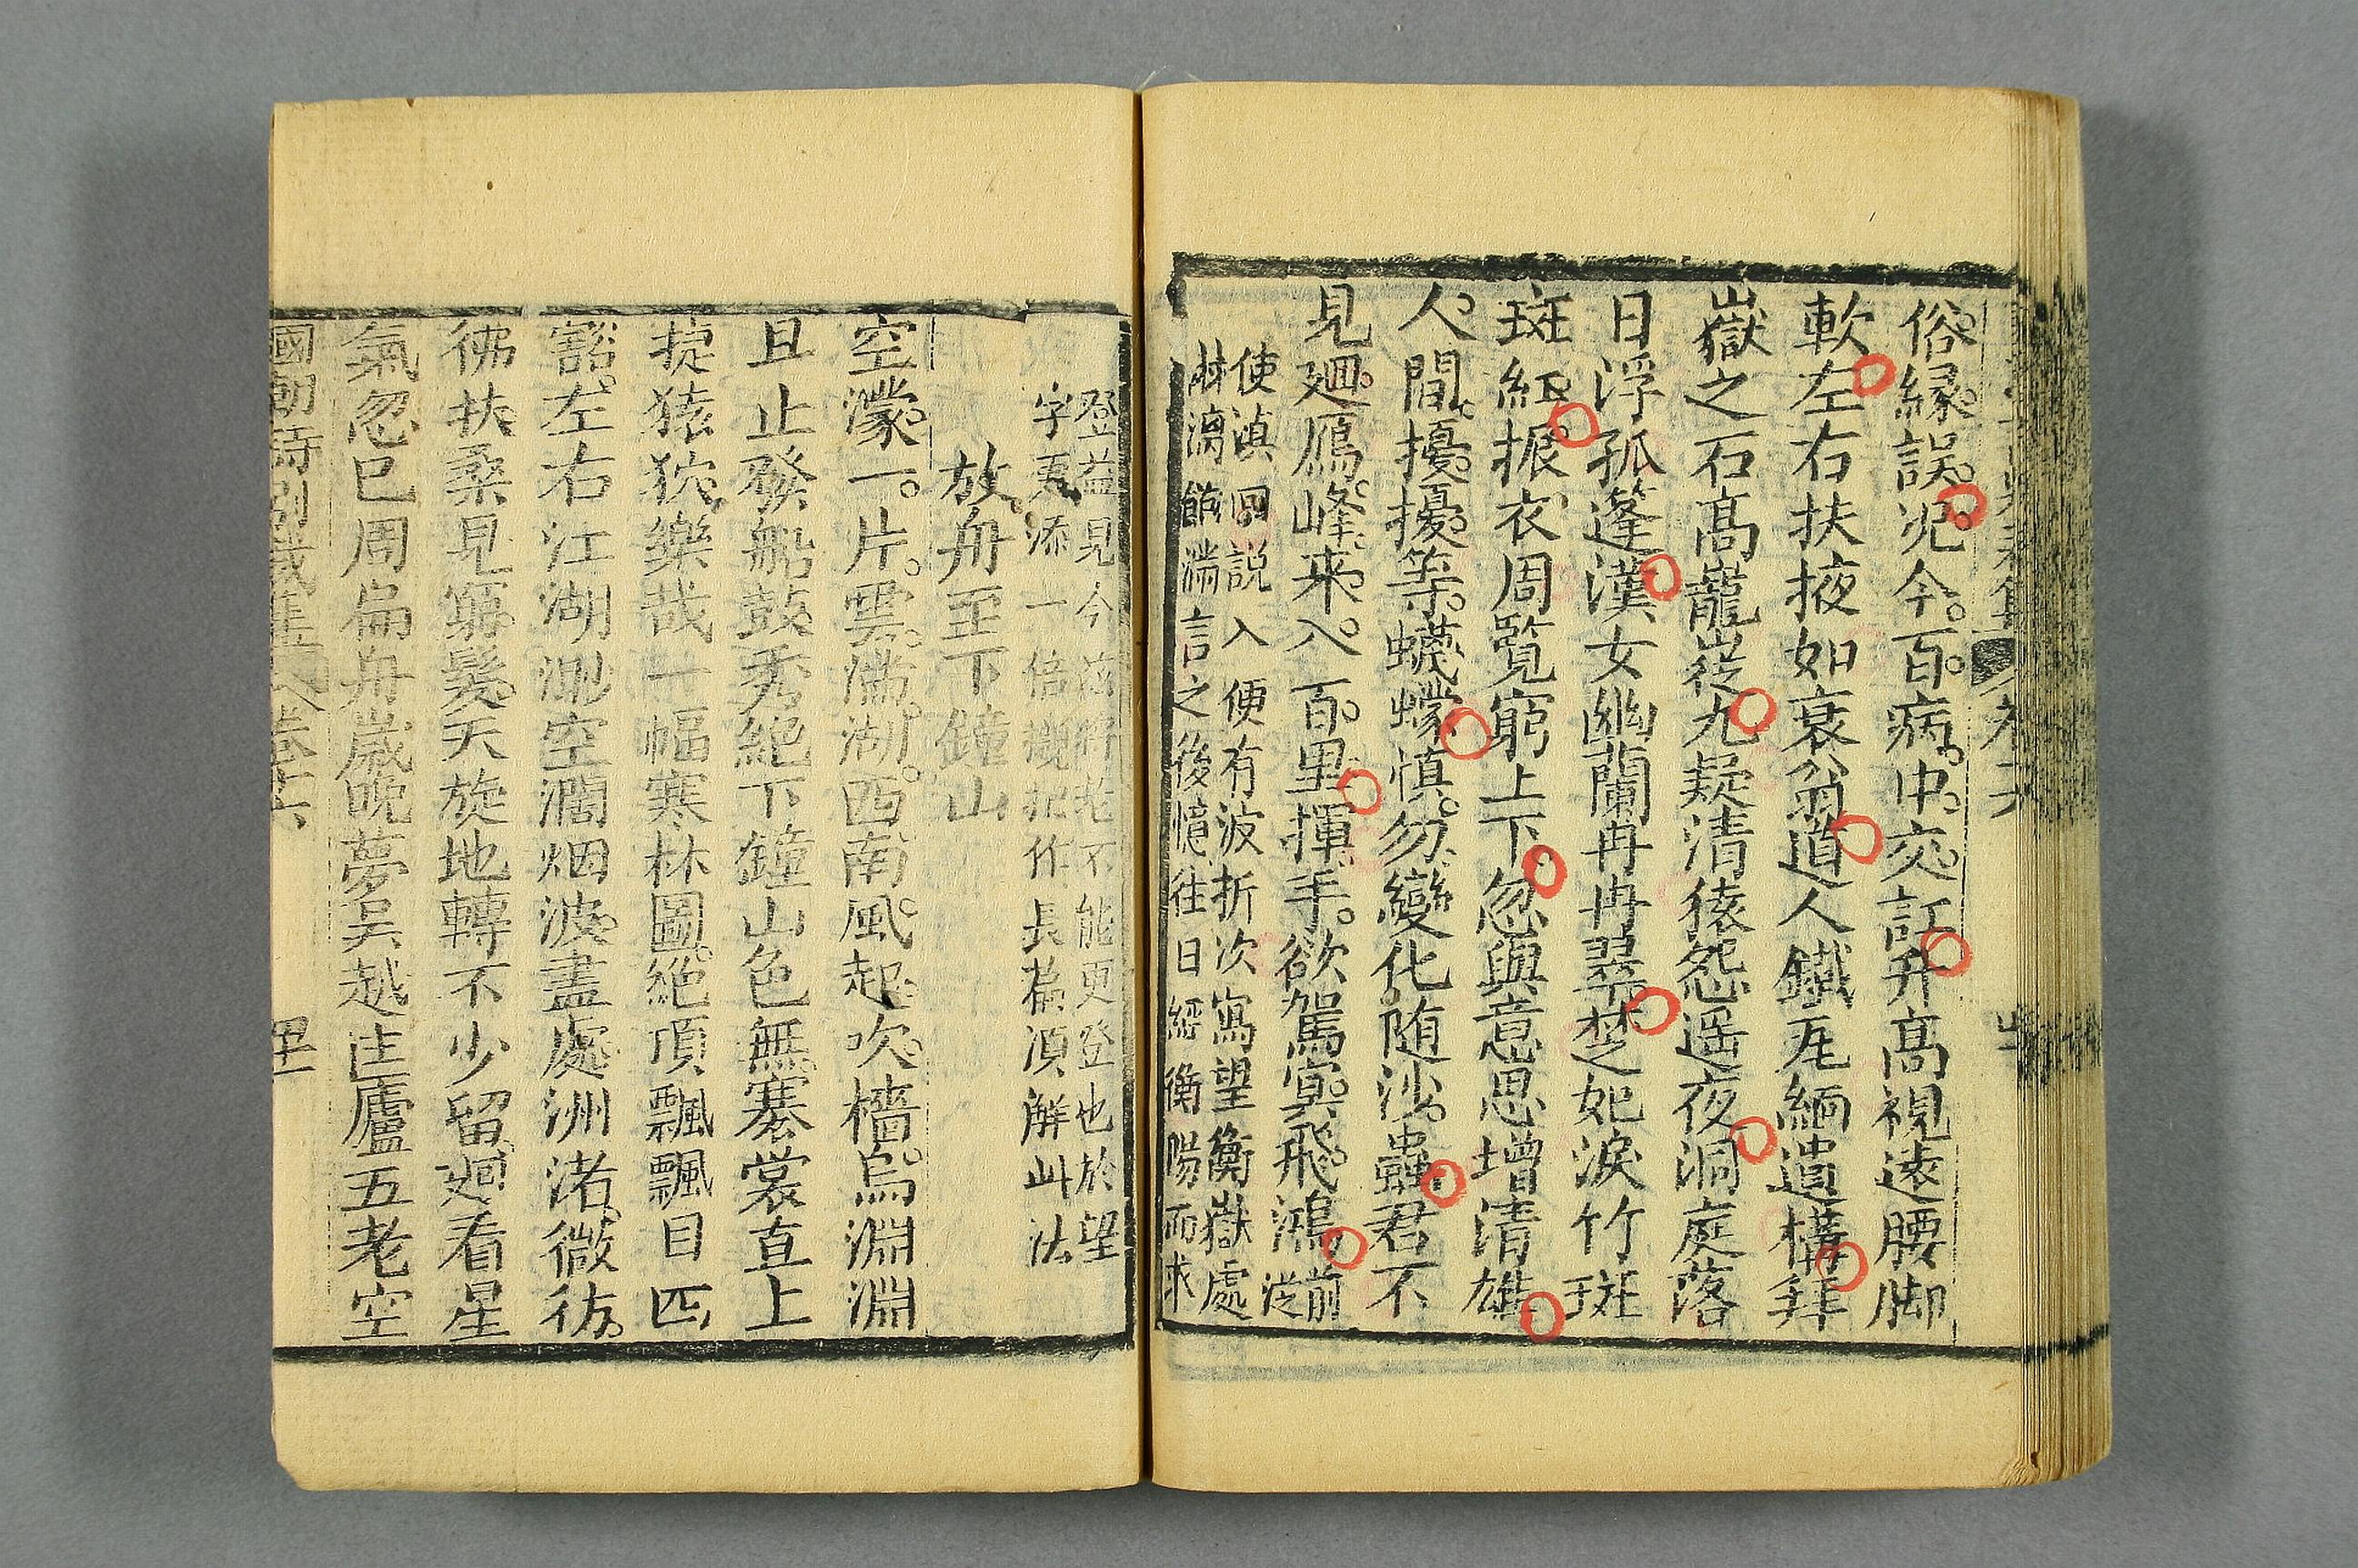 俗緣誤況今百病中交訌升高視遠腰脚
軟左右扶掖如衰翁道人鐵瓦緬遺構拜
嶽之石高巃嵸九疑清猿怨遥夜洞庭落
日浮孤篷漢女幽蘭冉冉翠楚妃淚竹斑
斑紅振衣周覽窮上下忽與意思增清雄
人間擾擾等蠛蠓慎勿變化随沙蟲君不
見廻鴈峰来入百里揮手欲駕冥飛鴻前從
使滇回説入便有波折次寫望衡嶽處
淋漓飽滿言之後憶往日經衡陽而求
登益見今衰將老不能更登也於望
字更添一倍襯托作長篇須解此法
放舟至下鐘山
空濛一片雲滿湖西南風起吹檣烏淵淵
且止發船鼓秀絶下鐘山色無褰裳直上
捷猿狖樂哉一幅寒林圖絶頂飄飄目四
豁左右江湖渺空濶烟波盡處洲渚微彷
彿扶桑見窮髮天旋地轉不少留廻看星
氣忽已周扁舟歲晚夢吳越匡廬五老空
國朝詩别裁集 卷六